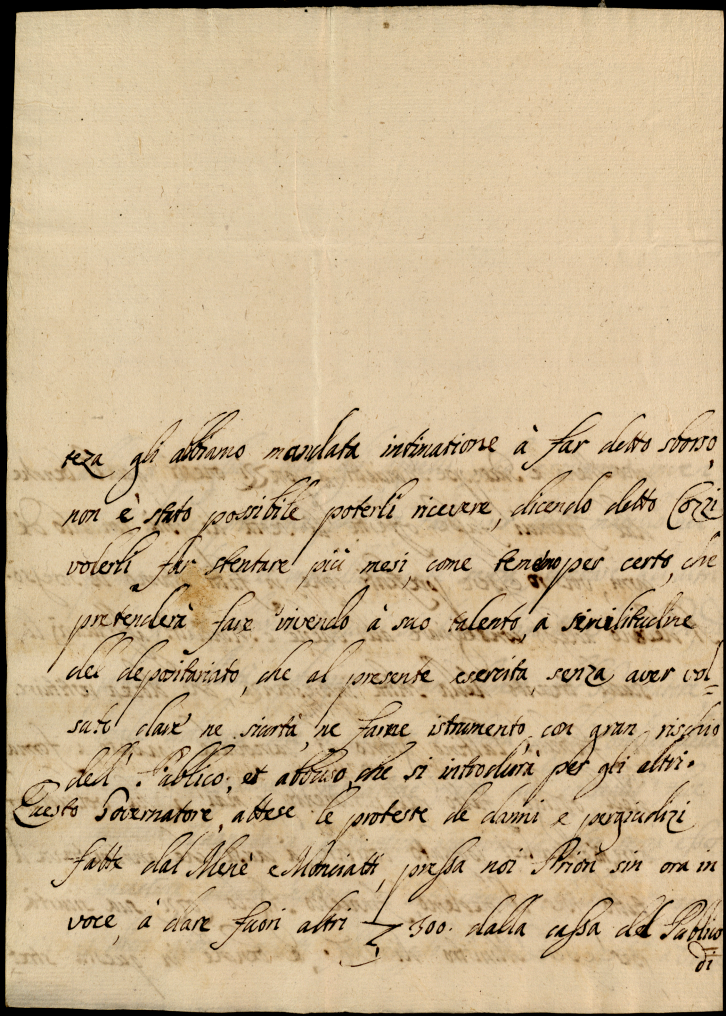 teza gli abbiamo mandata intimatione à far detto sborso,
non è stato possibile poterli ricevere, dicendo detto Cozzi
volerli far stentare più mesi, come temono per certo, che
pretenderà fare vivendo à suo talento, a similitudine
del depositariato, che al presente esercita, senza aver vol=
suto dare ne sicurtà, ne farne istrumento, con gran rischio
dell' Publico, et abbuso, che si introdurà per gli altri.
Questo Governatore, attese le proteste de danni e pergiudizi
fatte dal Menè e Monciatti, pressa noi Priori sin ora in
voce, à dare fuori altri 300. dalla cassa del Publico
di